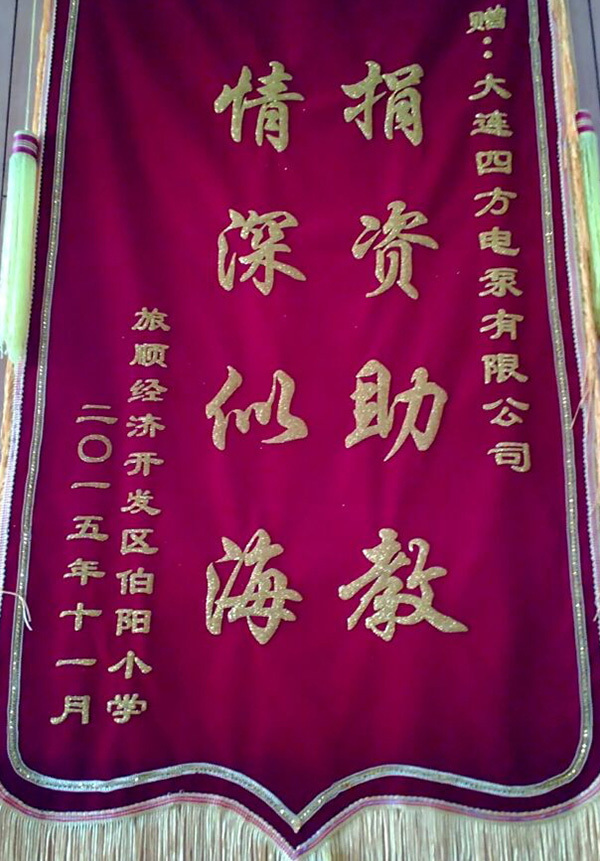 赠：大连四方电泵有限公司
捐资助教
情深似海
旅顺经济开发区伯阳小学
二〇一五年十一月